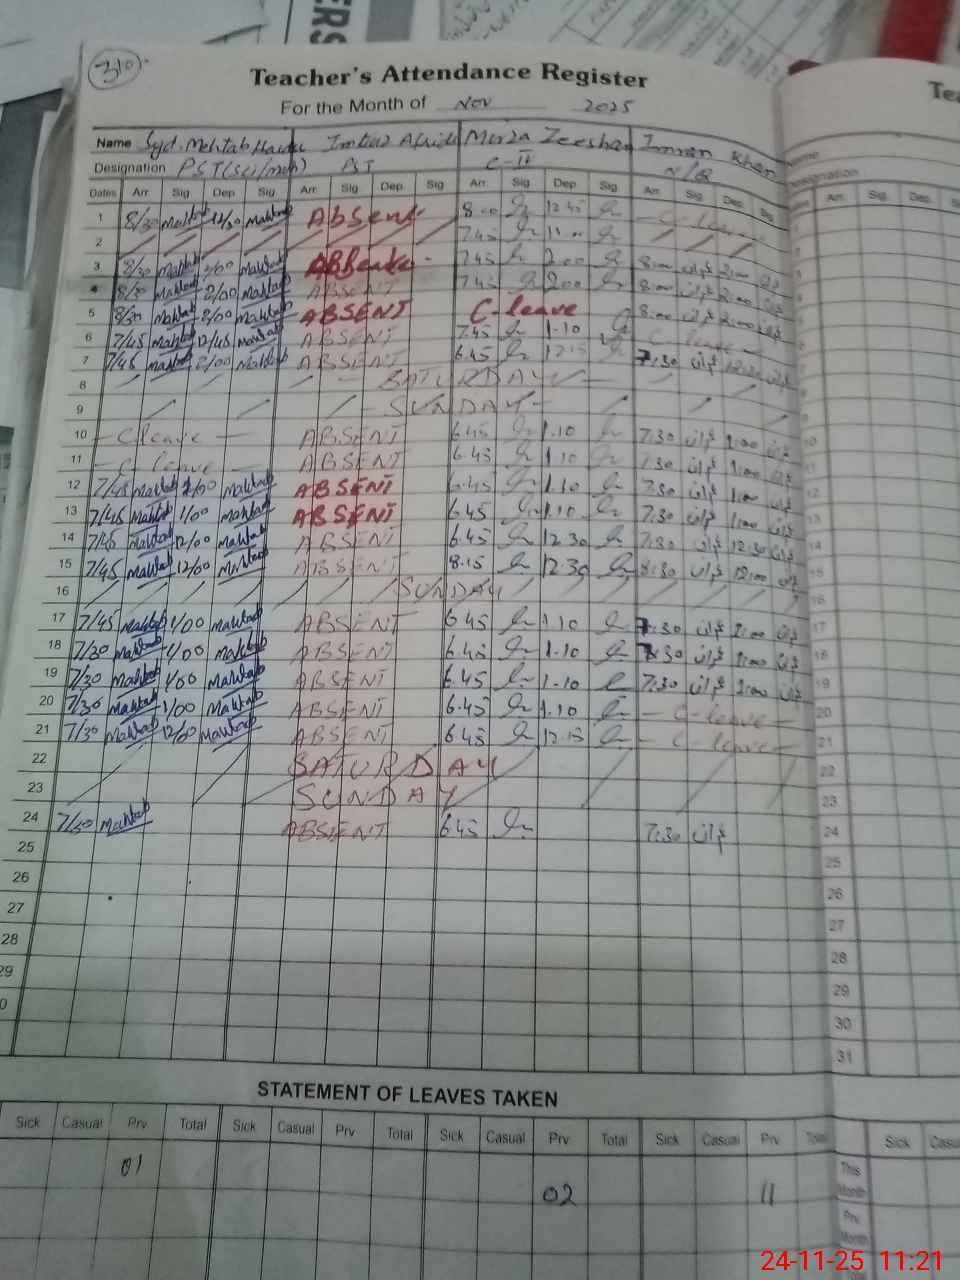 310
Teacher's Attendance Register
For the Month of Nov 2025
Name Syd. Mehtab Haider Imtiaz Afridi Mirza Zeeshan Imran Khan
Designation PST(Sci/math) PST C-IV N/Q
Dates Arr. Sig Dep Sig Arr. Sig Dep Sig Arr. Sig Dep Sig Arr. Sig Dep Sig
1 8/30 Mahtab 12/30 Mahtab Absent 8.00 12.45 C-leave
2 7.45 11.00
3 8/30 Mahtab 2/00 Mahtab 7.45 2.00 8:00 عمران 2:00
4 8/30 Mahtab 2/00 Mahtab ABSENT 7.45 2.00 8:00 عمران 2:00
5 8/30 Mahtab 2/00 Mahtab ABSENT C-leave 8:00 عمران 2:00
6 7/45 Mahtab 12/45 Mahtab ABSENT 7.45 1.10 C-leave
7 7/45 Mahtab 2/00 Mahtab ABSENT 6.45 12.15 7:30 عمران 12:30
8 SATURDAY
9 SUNDAY
10 C leave ABSENT 6.45 1.10 7:30 عمران 1:00
11 C leave ABSENT 6.45 1.10 7:30 عمران 1:00
12 7/45 Mahtab 1/00 Mahtab ABSENT 6.45 1.10 7:30 عمران 1:00
13 7/45 Mahtab 1/00 Mahtab ABSENT 6.45 1.10 7:30 عمران 1:00
14 7/45 Mahtab 12/00 Mahtab ABSENT 6.45 12.30 7:30 عمران 12:30
15 7/45 Mahtab 12/00 Mahtab ABSENT 8.15 12.30 8:30 عمران 12:00
16 SUNDAY
17 7/45 Mahtab 1/00 Mahtab ABSENT 6.45 1.10 7:30 عمران 1:00
18 7/30 Mahtab 1/00 Mahtab ABSENT 6.45 1.10 7:30 عمران 1:00
19 7/30 Mahtab 1/00 Mahtab ABSENT 6.45 1.10 7:30 عمران 1:00
20 7/30 Mahtab 1/00 Mahtab ABSENT 6.45 1.10 C-leave
21 7/30 Mahtab 12/00 Mahtab ABSENT 6.45 12.15 C-leave
22 SATURDAY
23 SUNDAY
24 7/30 Mahtab ABSENT 6.45 7:30 عمران
25
26
27
28
29
30
31
STATEMENT OF LEAVES TAKEN
Sick Casual Prv Total Sick Casual Prv Total Sick Casual Prv Total Sick Casual Prv Total Sick
01 02 11
This Month
Prv. Month
24-11-25 11:21